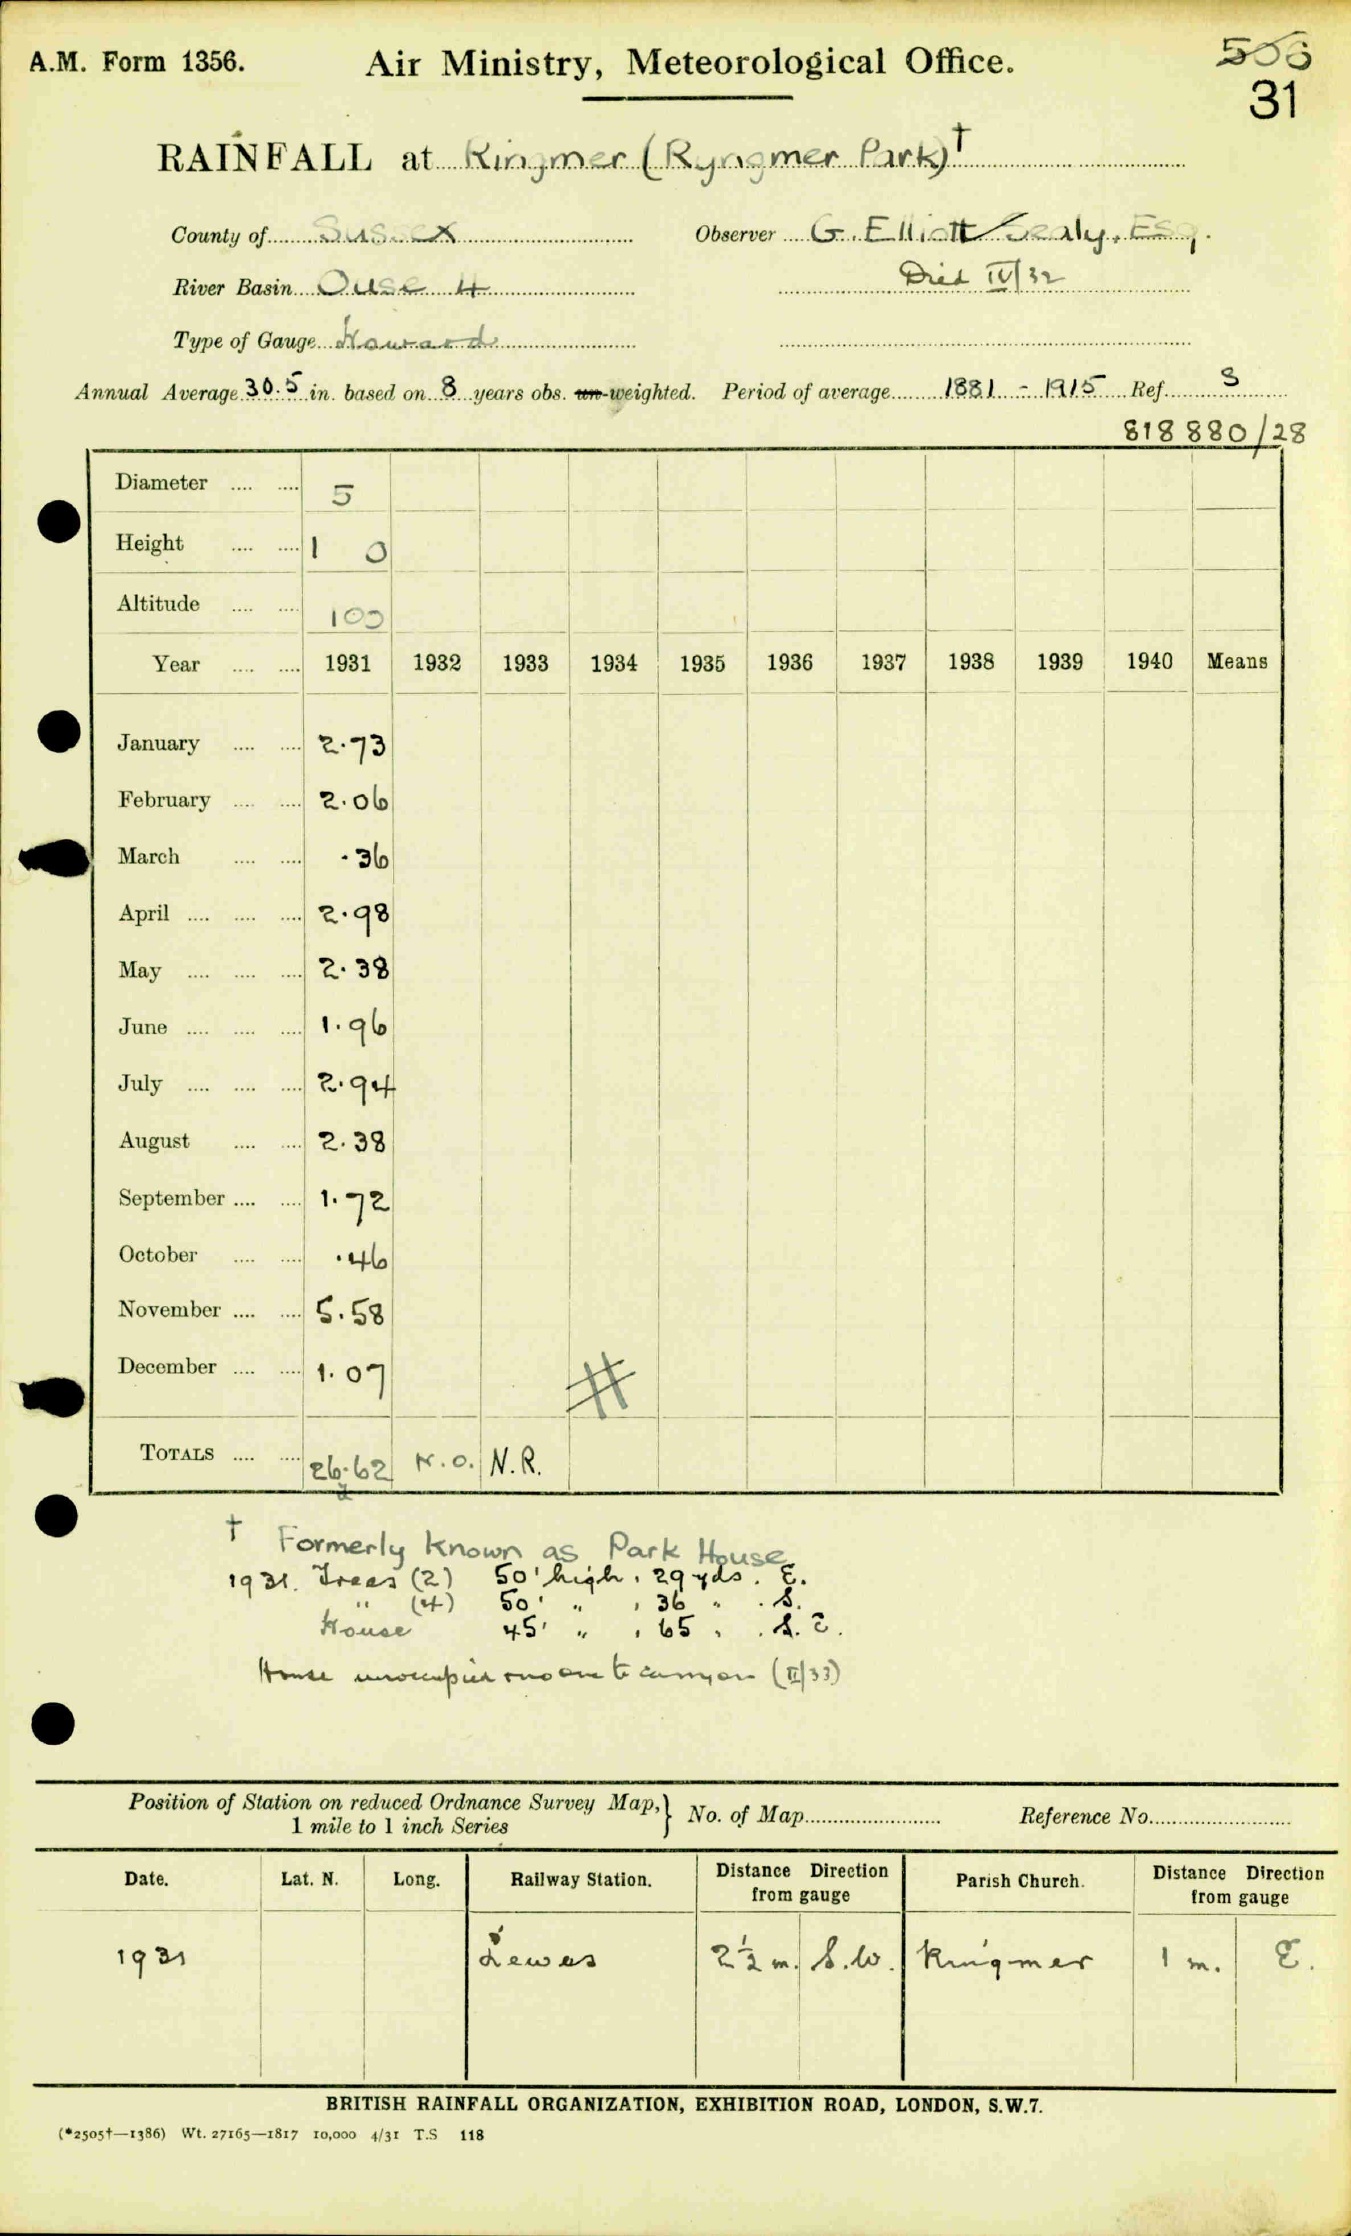 A.M. Form 1356. Air Ministry, Meteorological Office. 506
31
RAINFALL at Ringmer (Ryngmer Park) †
County of Sussex Observer G. Elliott Sealy, Esq.
River Basin Ouse 4 Died IV/32
Type of Gauge Howard
Annual Average 30.5 in. based on 8 years obs. un-weighted. Period of average 1881 - 1915 Ref. S
818880/28
Diameter .... .... 5
Height .... .... 1 0
Altitude .... .... 100
Year .... .... 1931 1932 1933 1934 1935 1936 1937 1938 1939 1940 Means
January .... .... 2.73
February .... .... 2.06
March .... .... .36
April .... .... .... 2.98
May .... .... .... 2.38
June .... .... .... 1.96
July .... .... .... 2.94
August .... .... 2.38
September .... .... 1.72
October .... .... .46
November .... .... 5.58
December .... .... 1.07
TOTALS .... .... 26.62 N.O. N.R.
† Formerly known as Park House
1931. Trees (2) 50' high, 29 yds. E.
" (4) 50' " , 36 " . S.
House 45' " , 65 " . S.E.
House unoccupied & no one to carry on (II/33)
Position of Station on reduced Ordnance Survey Map, } No. of Map Reference No.
1 mile to 1 inch Series
Date. Lat. N. Long. Railway Station. Distance Direction from gauge Parish Church. Distance Direction from gauge
1931 Lewes 2½ m. S.W. Ringmer 1 m. E.
BRITISH RAINFALL ORGANIZATION, EXHIBITION ROAD, LONDON, S.W.7.
(*2505†—1386) Wt. 27165—1817 10,000 4/31 T.S 118